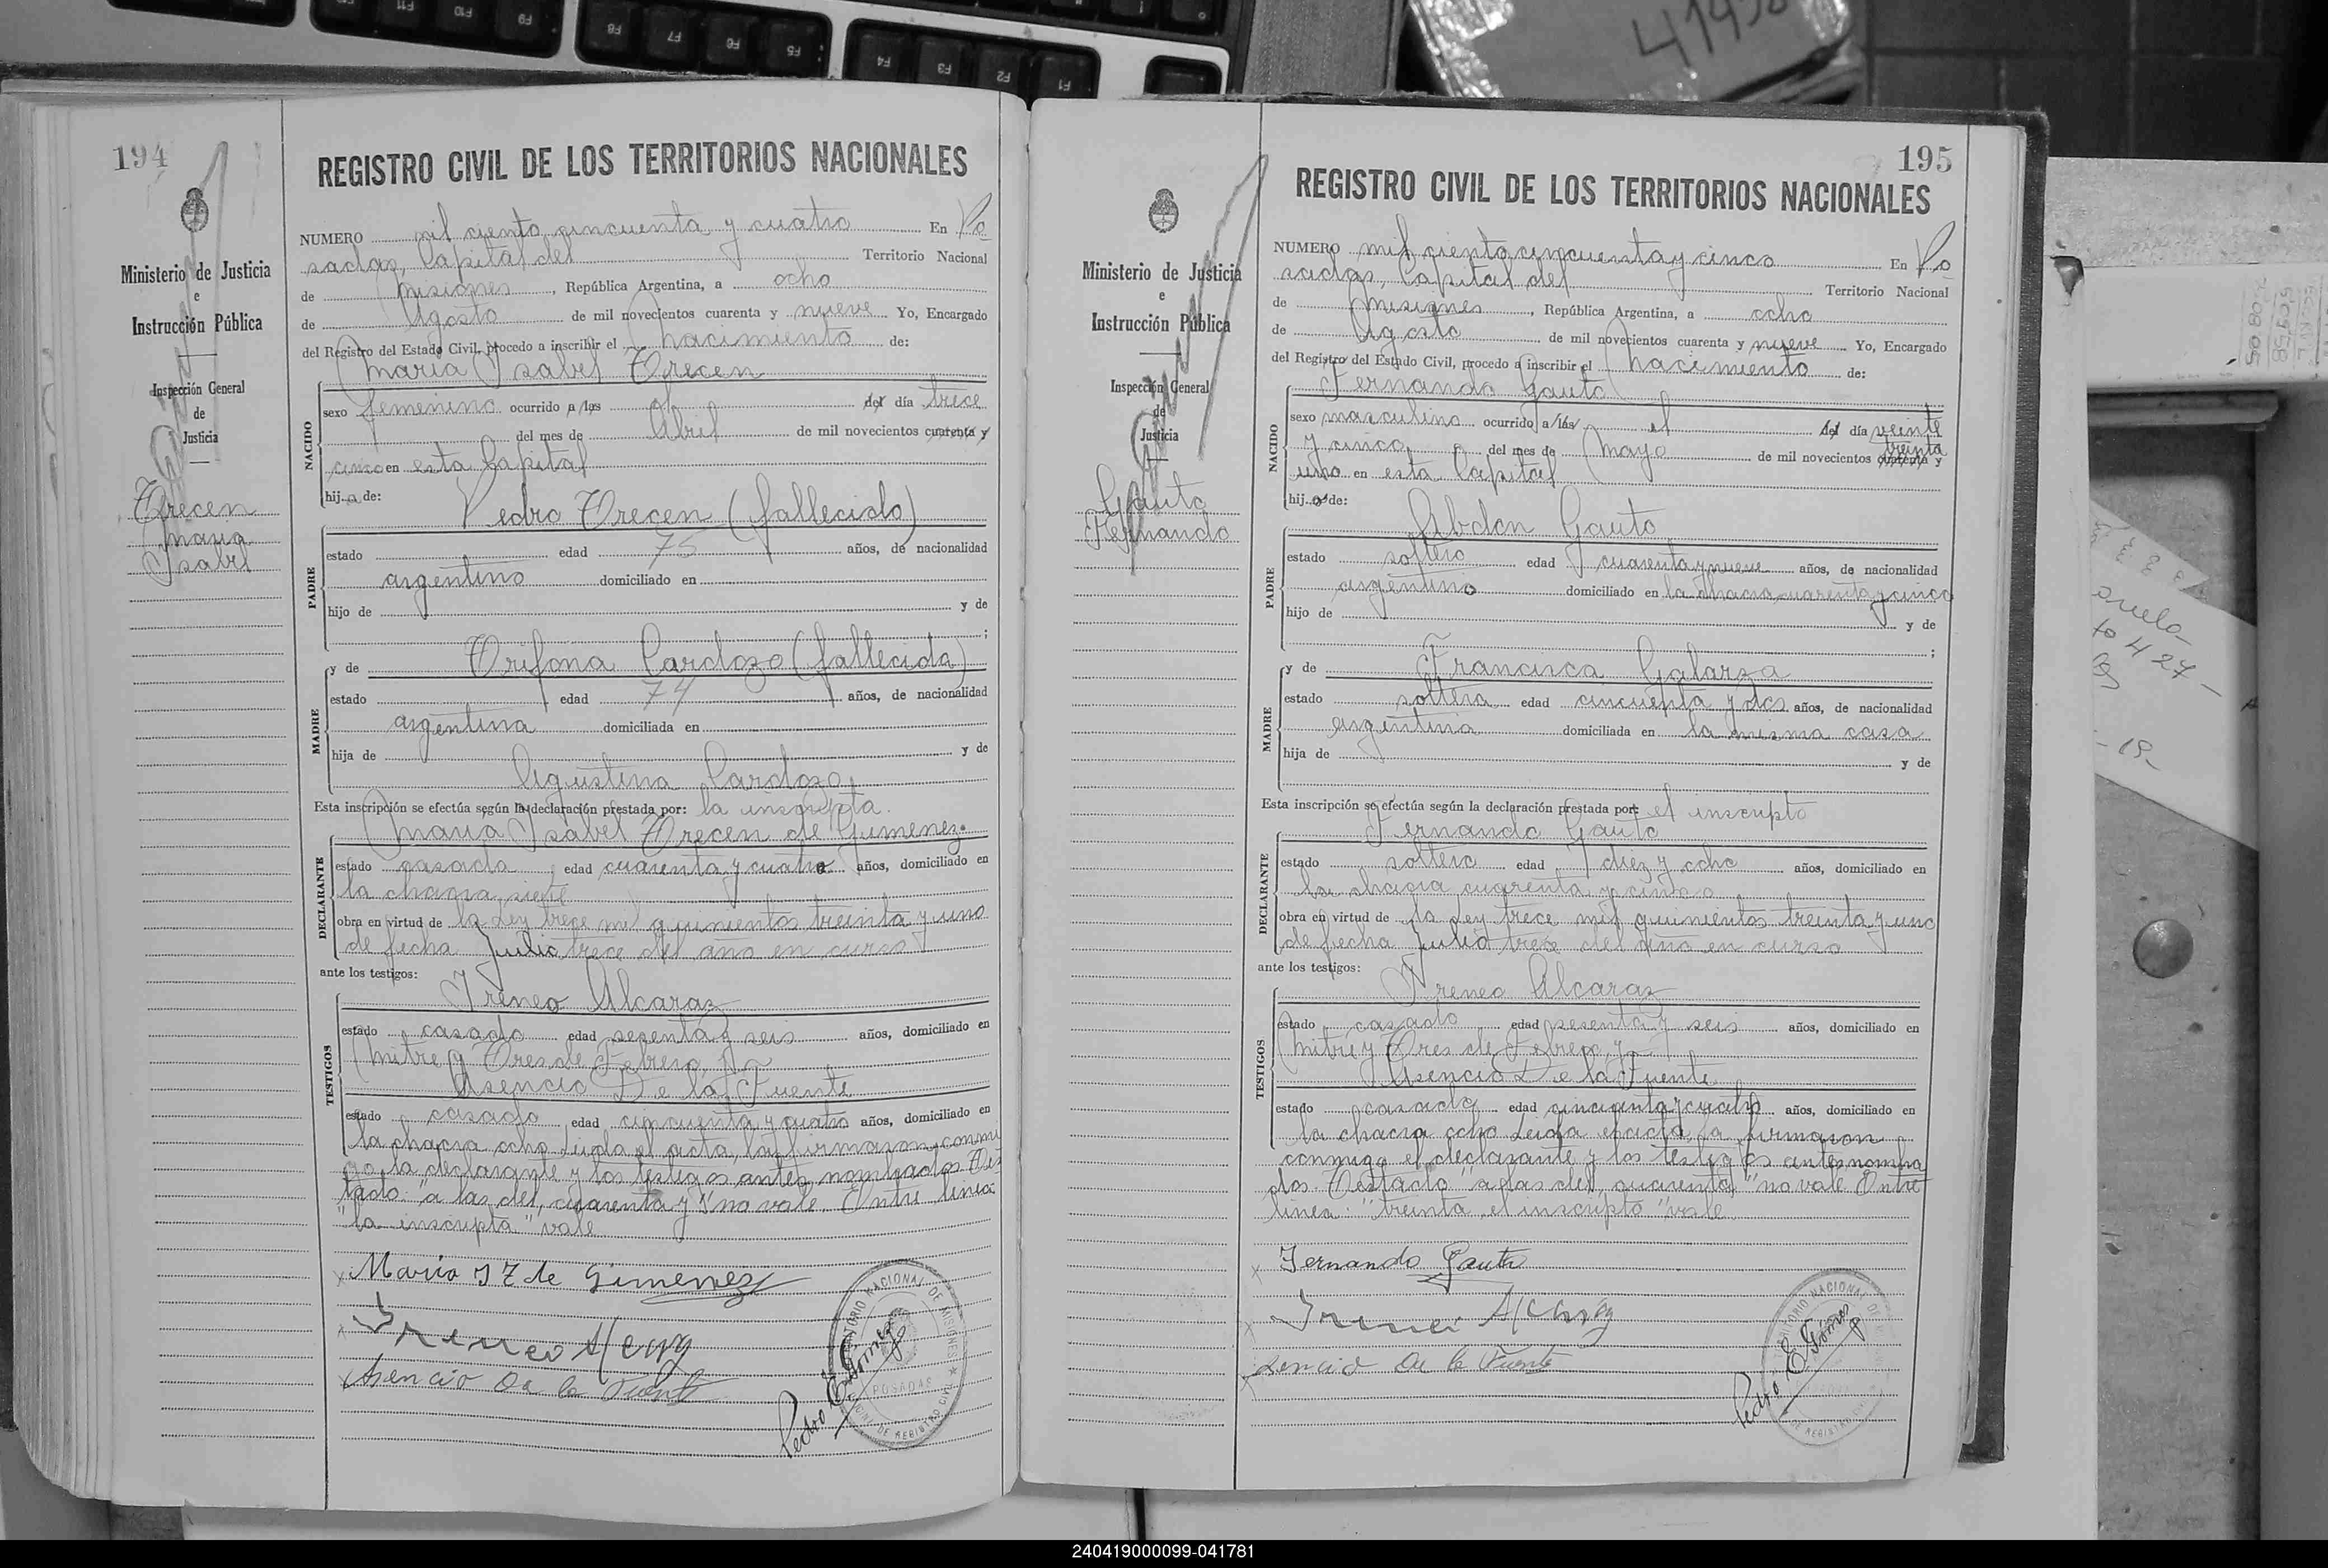 194
REGISTRO CIVIL DE LOS TERRITORIOS NACIONALES
Ministerio de Justicia
e
Instrucción Pública
Inspección General
de
Justicia
Orecen
Maria
Isabel
NUMERO mil ciento cincuenta y cuatro En Po
sadas, Capital del Territorio Nacional
de Misiones, República Argentina, a ocho
de Agosto de mil novecientos cuarenta y nueve Yo, Encargado
del Registro del Estado Civil, procedo a inscribir el nacimiento de:
Maria Isabel Orecen
NACIDO
sexo femenino ocurrido a las el del día trece
del mes de Abril de mil novecientos cuarenta y
cinco en esta Capital
hija de:
Pedro Orecen (fallecido)
PADRE
estado edad 75 años, de nacionalidad
argentino domiciliado en
hijo de y de
;
MADRE
y de Orifona Cardozo (fallecida)
estado edad 74 años, de nacionalidad
argentina domiciliada en
hija de y de
Agustina Cardozo
Esta inscripción se efectúa según la declaración prestada por: la inscripta.
Maria Isabel Orecen de Gimenez.
DECLARANTE
estado casada edad cuarenta y cuatro años, domiciliado en
la chacra siete
obra en virtud de la Ley trece mil quinientos treinta y uno
de fecha Julio trece del año en curso
ante los testigos:
TESTIGOS
Ireneo Alcaraz
estado casado edad sesenta y seis años, domiciliado en
Mitre y Tres de Febrero, y
Asencio De la Fuente
estado casado edad cincuenta y cuatro años, domiciliado en
la chacra ocho Leída el acta, la firmaron conmi
go, la declarante y los testigos antes nombrados Tes
tado: "a las del, cuarenta y" no vale. Entre linea:
"la inscripta" vale
Maria I Z de Gimenez
Ireneo Alcaraz
Asencio De la Fuente
Pedro E. Gómez
TERRITORIO NACIONAL DE MISIONES
POSADAS
195
REGISTRO CIVIL DE LOS TERRITORIOS NACIONALES
Ministerio de Justicia
e
Instrucción Pública
Inspección General
de
Justicia
Gauto
Fernando
NUMERO mil ciento cincuenta y cinco En Po
sadas, Capital del Territorio Nacional
de Misiones, República Argentina, a ocho
de Agosto de mil novecientos cuarenta y nueve Yo, Encargado
del Registro del Estado Civil, procedo a inscribir el nacimiento de:
Fernando Gauto
NACIDO
sexo masculino ocurrido a las el del día veinte
y cinco del mes de mayo de mil novecientos cuarenta treinta y
uno en esta Capital
hijo de:
Abdon Gauto
PADRE
estado soltero edad cuarenta y nueve años, de nacionalidad
argentino domiciliado en la chacra cuarenta y cinco
hijo de y de
;
MADRE
y de Francisca Galarza
estado soltera edad cincuenta y dos años, de nacionalidad
argentina domiciliada en la misma casa
hija de y de
Esta inscripción se efectúa según la declaración prestada por: el inscripto
Fernando Gauto
DECLARANTE
estado soltero edad diez y ocho años, domiciliado en
la chacra cuarenta y cinco
obra en virtud de la Ley trece mil quinientos treinta y uno
de fecha Julio trece del año en curso
ante los testigos:
TESTIGOS
Ireneo Alcaraz
estado casado edad sesenta y seis años, domiciliado en
Mitre y Tres de Febrero, y
Asencio De la Fuente
estado casado edad cincuenta y cuatro años, domiciliado en
la chacra ocho Leída el acta, la firmaron
conmigo el declarante y los testigos antes nombra
dos. Testado "a las del, cuarenta" no vale. Entre
linea: "treinta, el inscripto" vale
Fernando Gauto
Ireneo Alcaraz
Asencio De la Fuente
Pedro E. Gómez
240419000099-041781